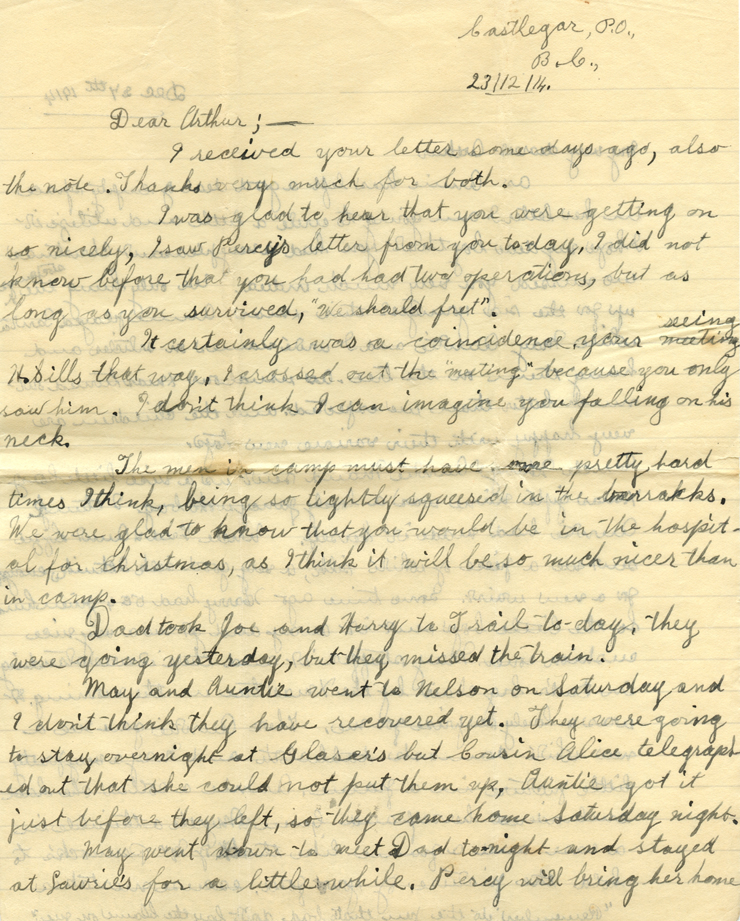 Castlegar, P.O.,
B.C.,
23/12/14.
Dear Arthur;—
I received your letter some days ago, also
the note. Thanks very much for both.
I was glad to hear that you were getting on
so nicely, I saw Percy's letter from you to-day, I did not
know before that you had had two operations, but as
long as you survived, "We should fret".
It certainly was a coincidence your seeing meeting
H. Dills that way, I crossed out the "meeting" because you only
saw him. I don't think I can imagine you falling on his
neck.
The men in camp must have pretty hard
times I think, being so tightly squeesed in the barrakks.
We were glad to know that you would be in the hospit-
al for christmas, as I think it will be so much nicer than
in camp.
Dad took Joe and Harry to Trail to-day, they
were going yesterday, but they missed the train.
May and Auntie went to Nelson on Saturday and
I don't think they have recovered yet. They were going
to stay overnight at Glaser's but Cousin Alice telegraph-
ed out that she could not put them up, Auntie got it
just before they left, so they came home Saturday night.
May went down to meet Dad to-night and stayed
at Lawrie's for a little while. Percy will bring her home